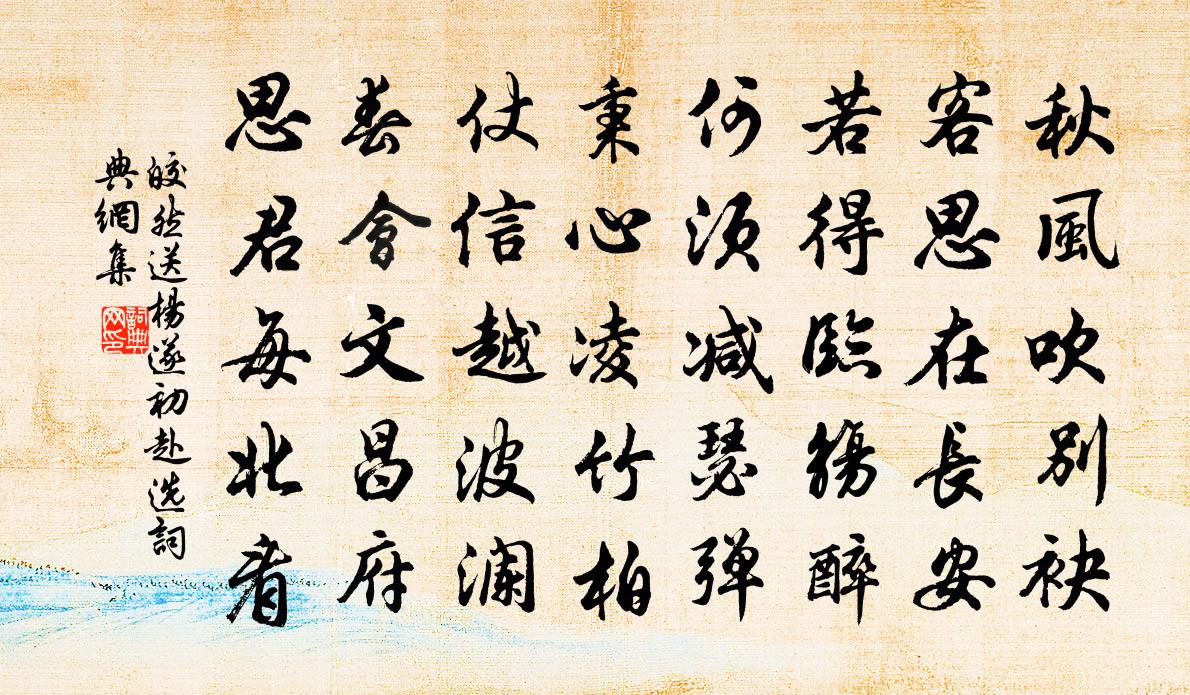 秋風吹別袂
客思在長安
若得臨觴醉
何須減瑟弹
秉心凌竹柏
仗信越波澜
春會文昌府
思君每北看
皎然送楊遂初赴选詞
典網集
詞典网印